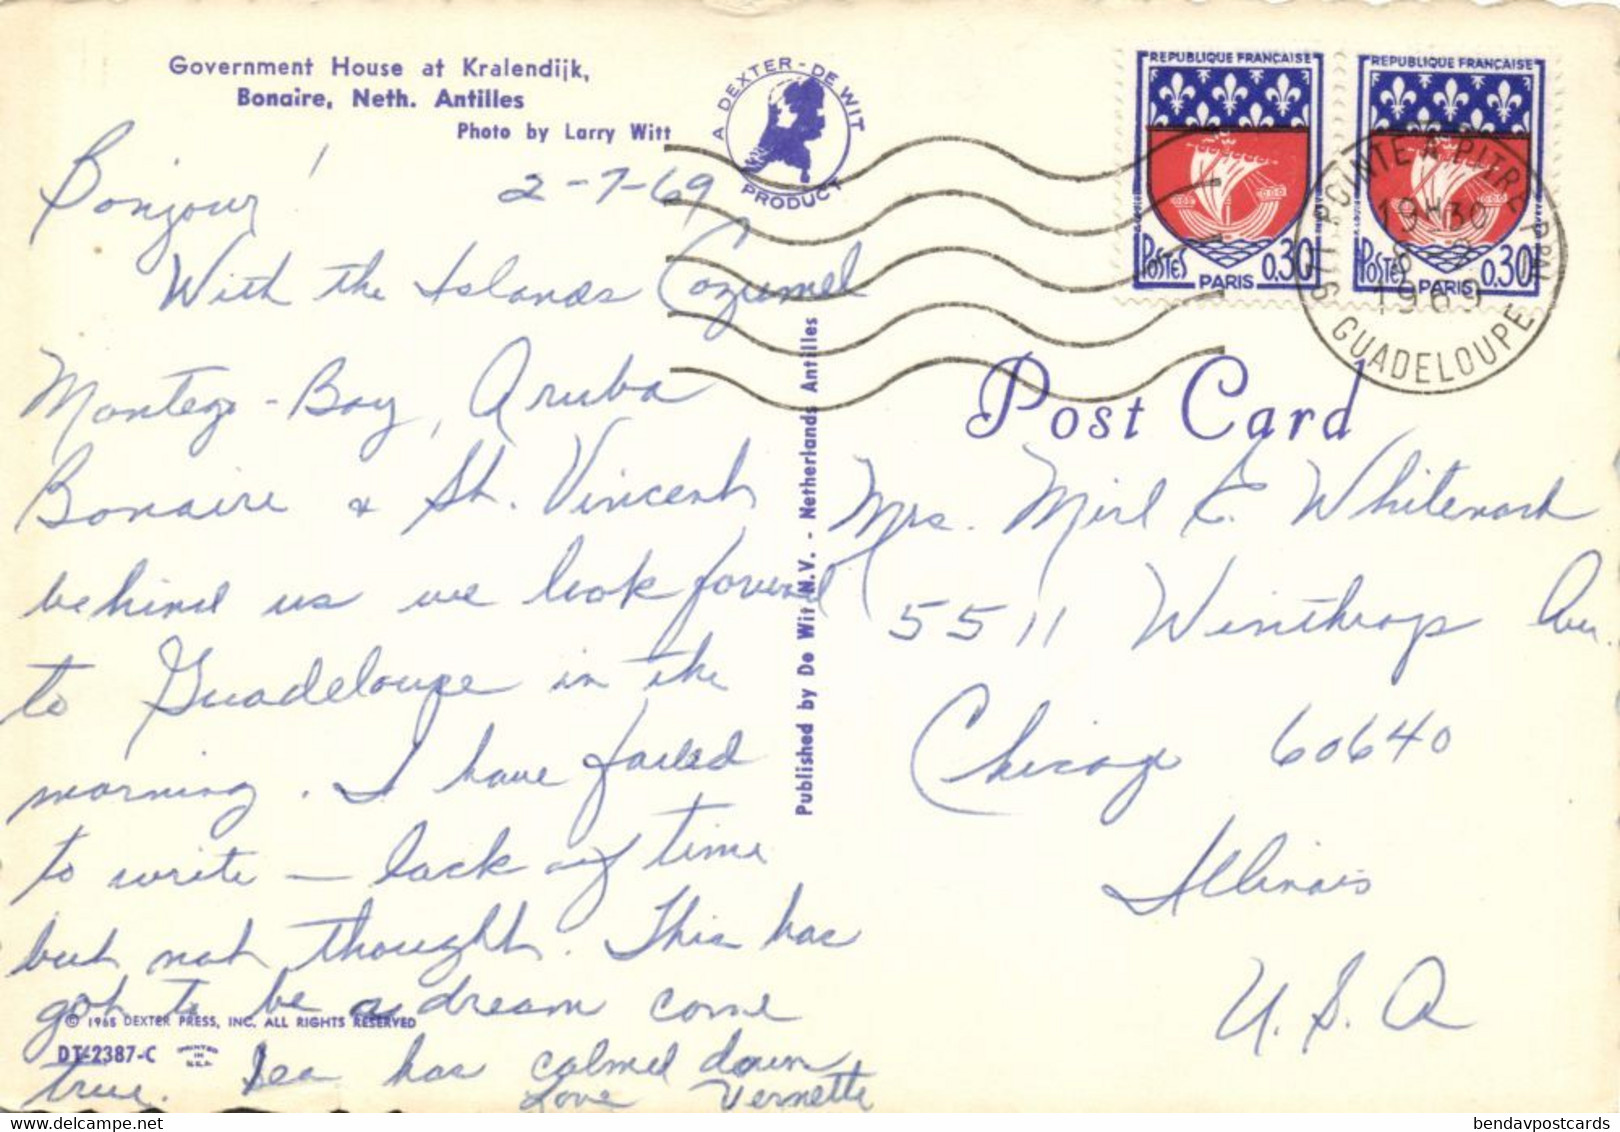 Government House at Kralendijk,
Bonaire, Neth. Antilles
Photo by Larry Witt
A DEXTER-DE WIT
PRODUCT
REPUBLIQUE FRANÇAISE
POSTES PARIS 0.30
REPUBLIQUE FRANÇAISE
POSTES PARIS 0.30
POINTE A PITRE PPAL
19H30
1969
GUADELOUPE
Bonjour!
2-7-69
With the Islands Cozumel
Montego-Bay, Aruba
Bonaire & St. Vincent
behind us we look forward
to Guadeloupe in the
morning. I have failed
to write — lack of time
but not thought. This has
got to be a dream come
true. Sea has calmed down
Love Vernette
Published by De Wit N.V. - Netherlands Antilles
Post Card
Mrs. Merl E. Whitenack
5511 Winthrop Ave.
Chicago 60640
Illinois
U.S.A
© 1965 DEXTER PRESS, INC. ALL RIGHTS RESERVED
DT-2387-C
PRINTED IN U.S.A.
bendavpostcards